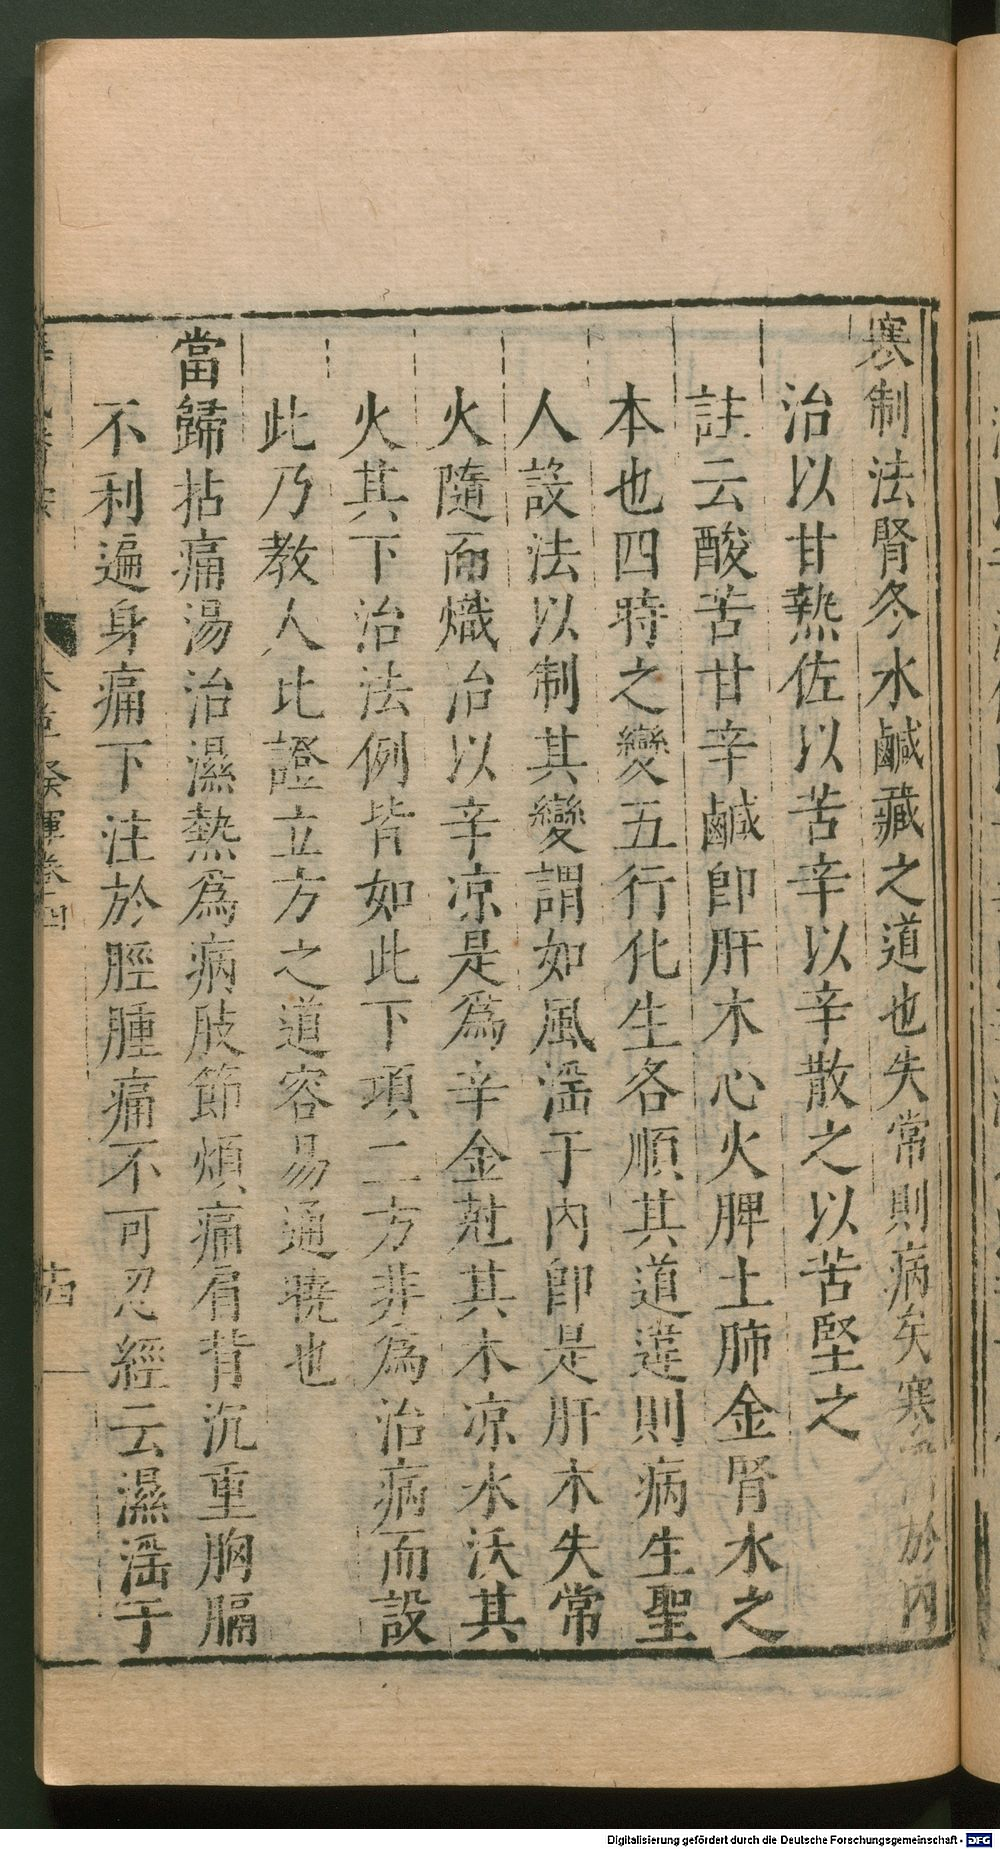 寒制法腎冬水鹹藏之道也失常則病矣寒淫於內
治以甘熱佐以苦辛以辛散之以苦堅之
註云酸苦甘辛鹹卽肝木心火脾土肺金腎水之
本也四時之變五行化生各順其道違則病生聖
人設法以制其變謂如風淫于內卽是肝木失常
火隨而熾治以辛凉是爲辛金尅其木凉水沃其
火其下治法例皆如此下項二方非爲治病而設
此乃教人比證立方之道容易通曉也
當歸拈痛湯治濕熱爲病肢節煩痛肩背沉重胸膈
不利遍身痛下注於脛腫痛不可忍經云濕淫于
發揮卷四
Digitalisierung gefördert durch die Deutsche Forschungsgemeinschaft - DFG